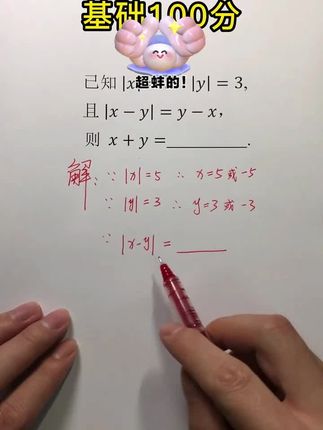 基础100分
超蚌的!
已知 |x| |y| = 3,
且 |x − y| = y − x,
则 x + y =________.
解: ∵ |x|=5 ∴ x=5或-5
∵ |y|=3 ∴ y=3或-3
∵ |x-y| = ____